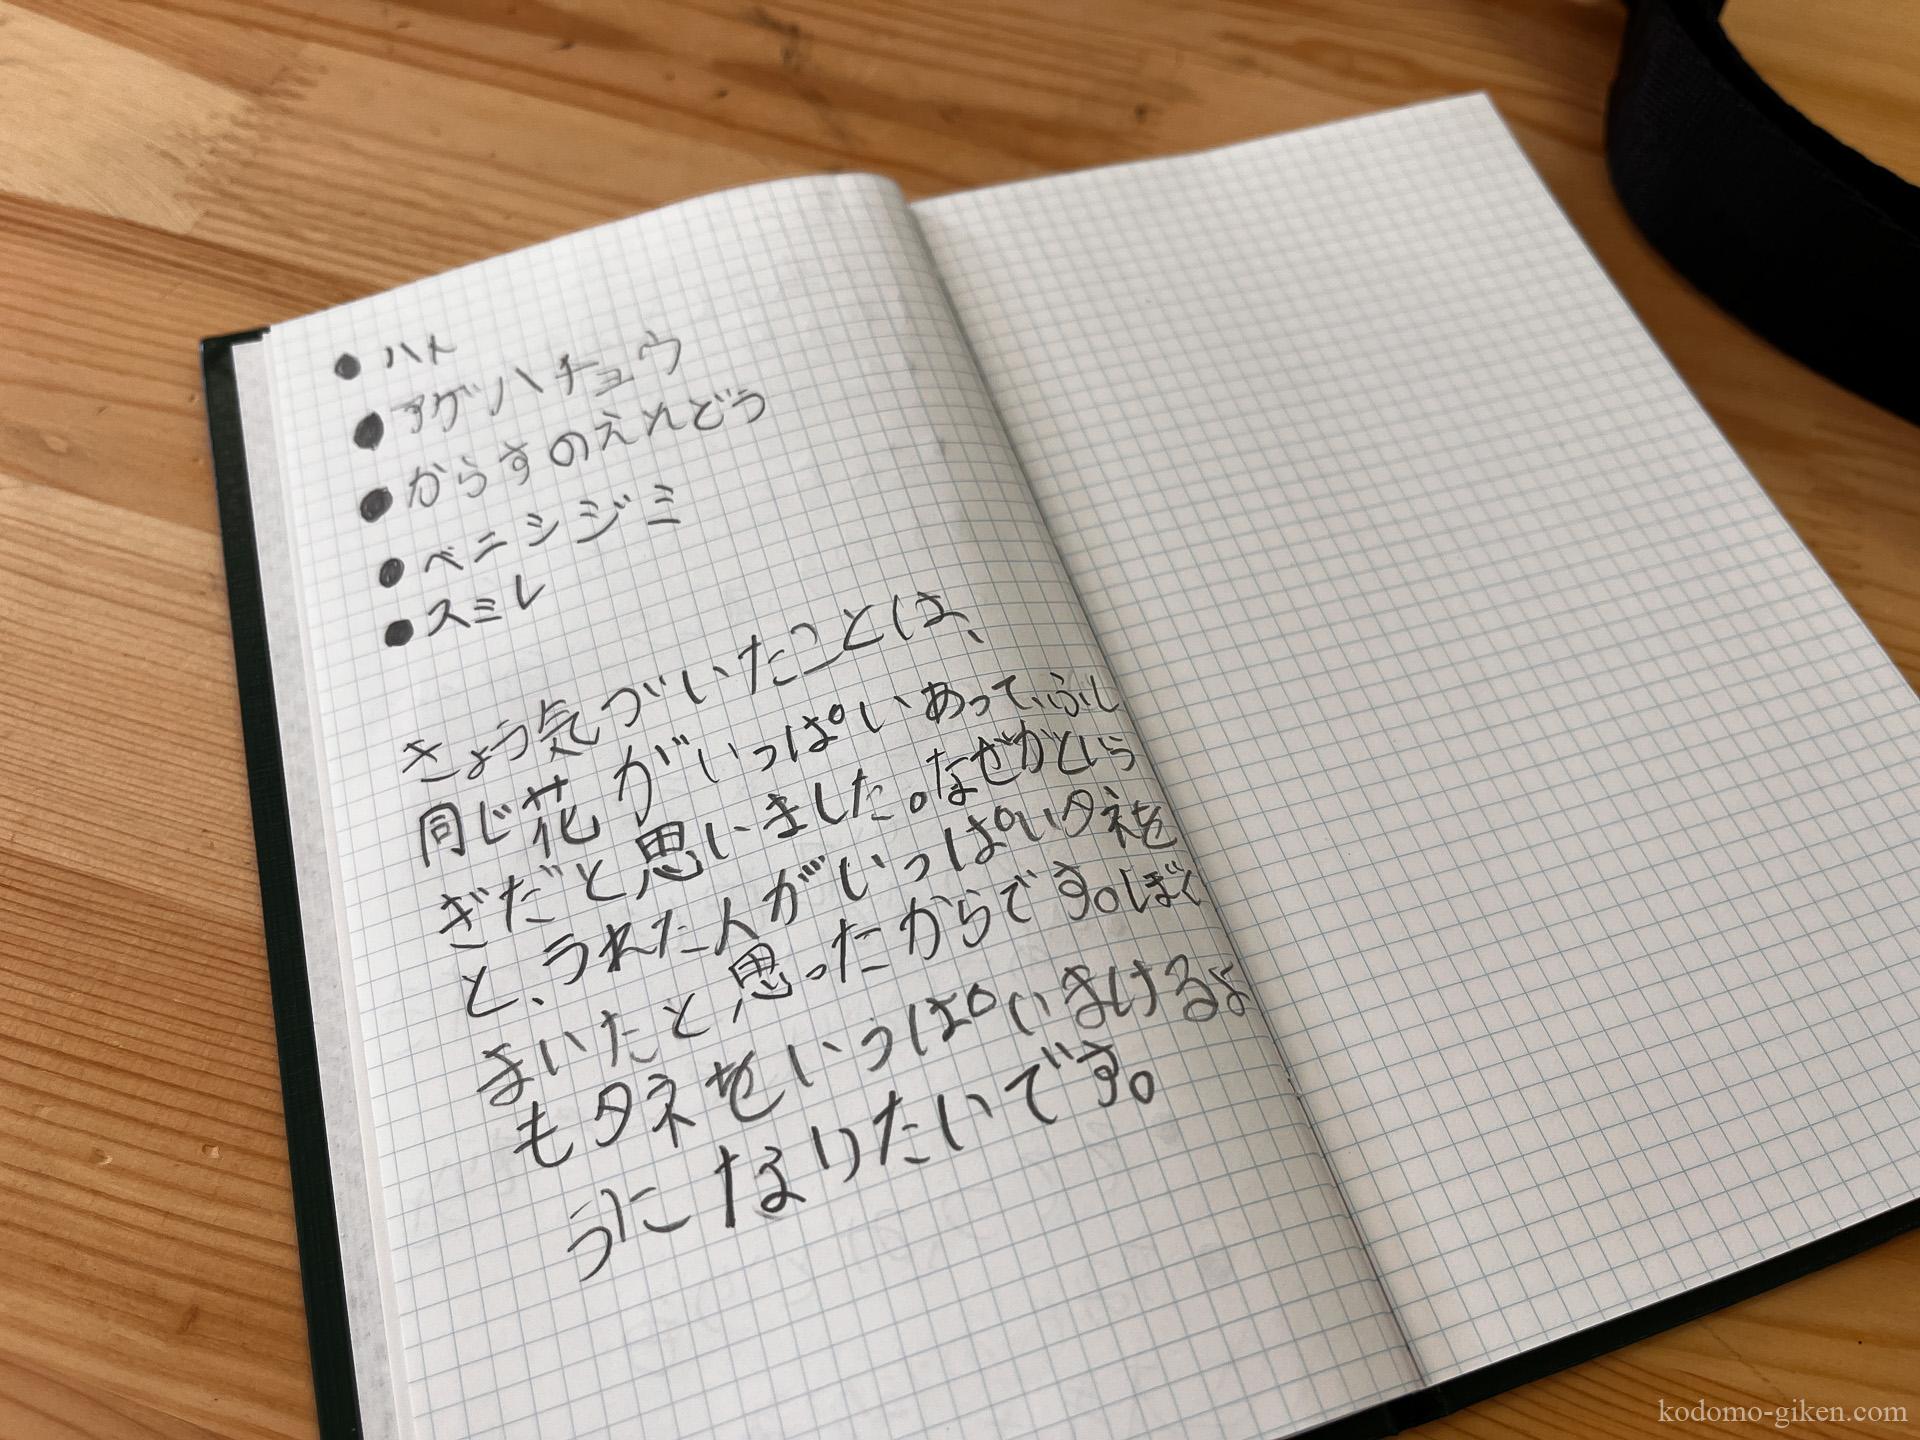 ● ハト
● アゲハチョウ
● からすのえんどう
● ベニシジミ
● スミレ
きょう気づいたことは、
同じ花がいっぱいあって、ふし
ぎだと思いました。なぜかといら
と、うれた人がいっぱいタネを
まいたと思ったからです。ぼく
もタネをいっぱいまけるよ
うになりたいです。
kodomo-giken.com